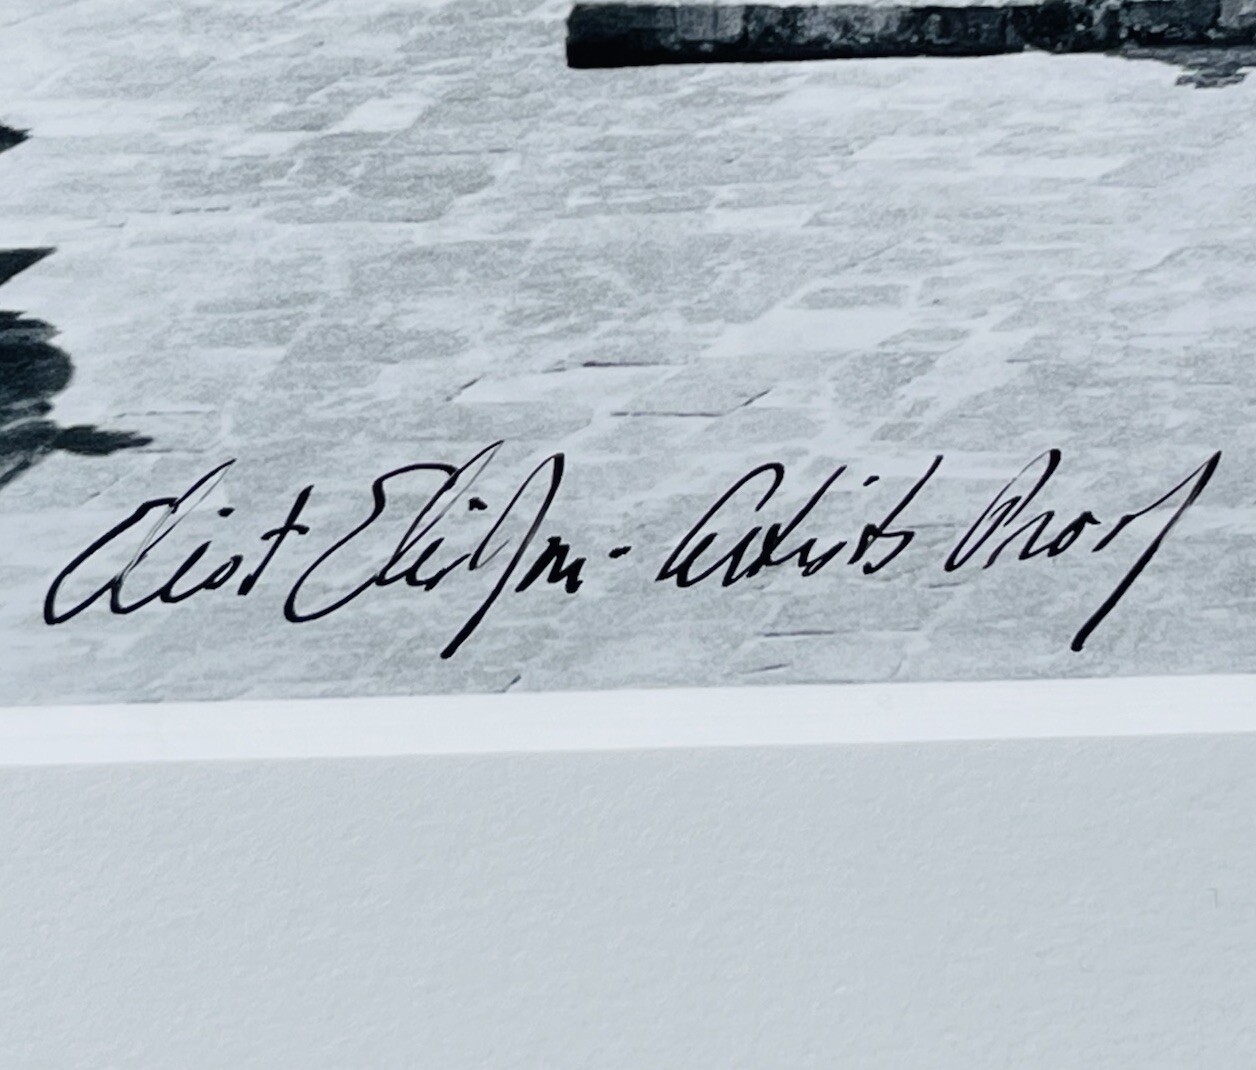 Eliot Elisofon - Artists Proof